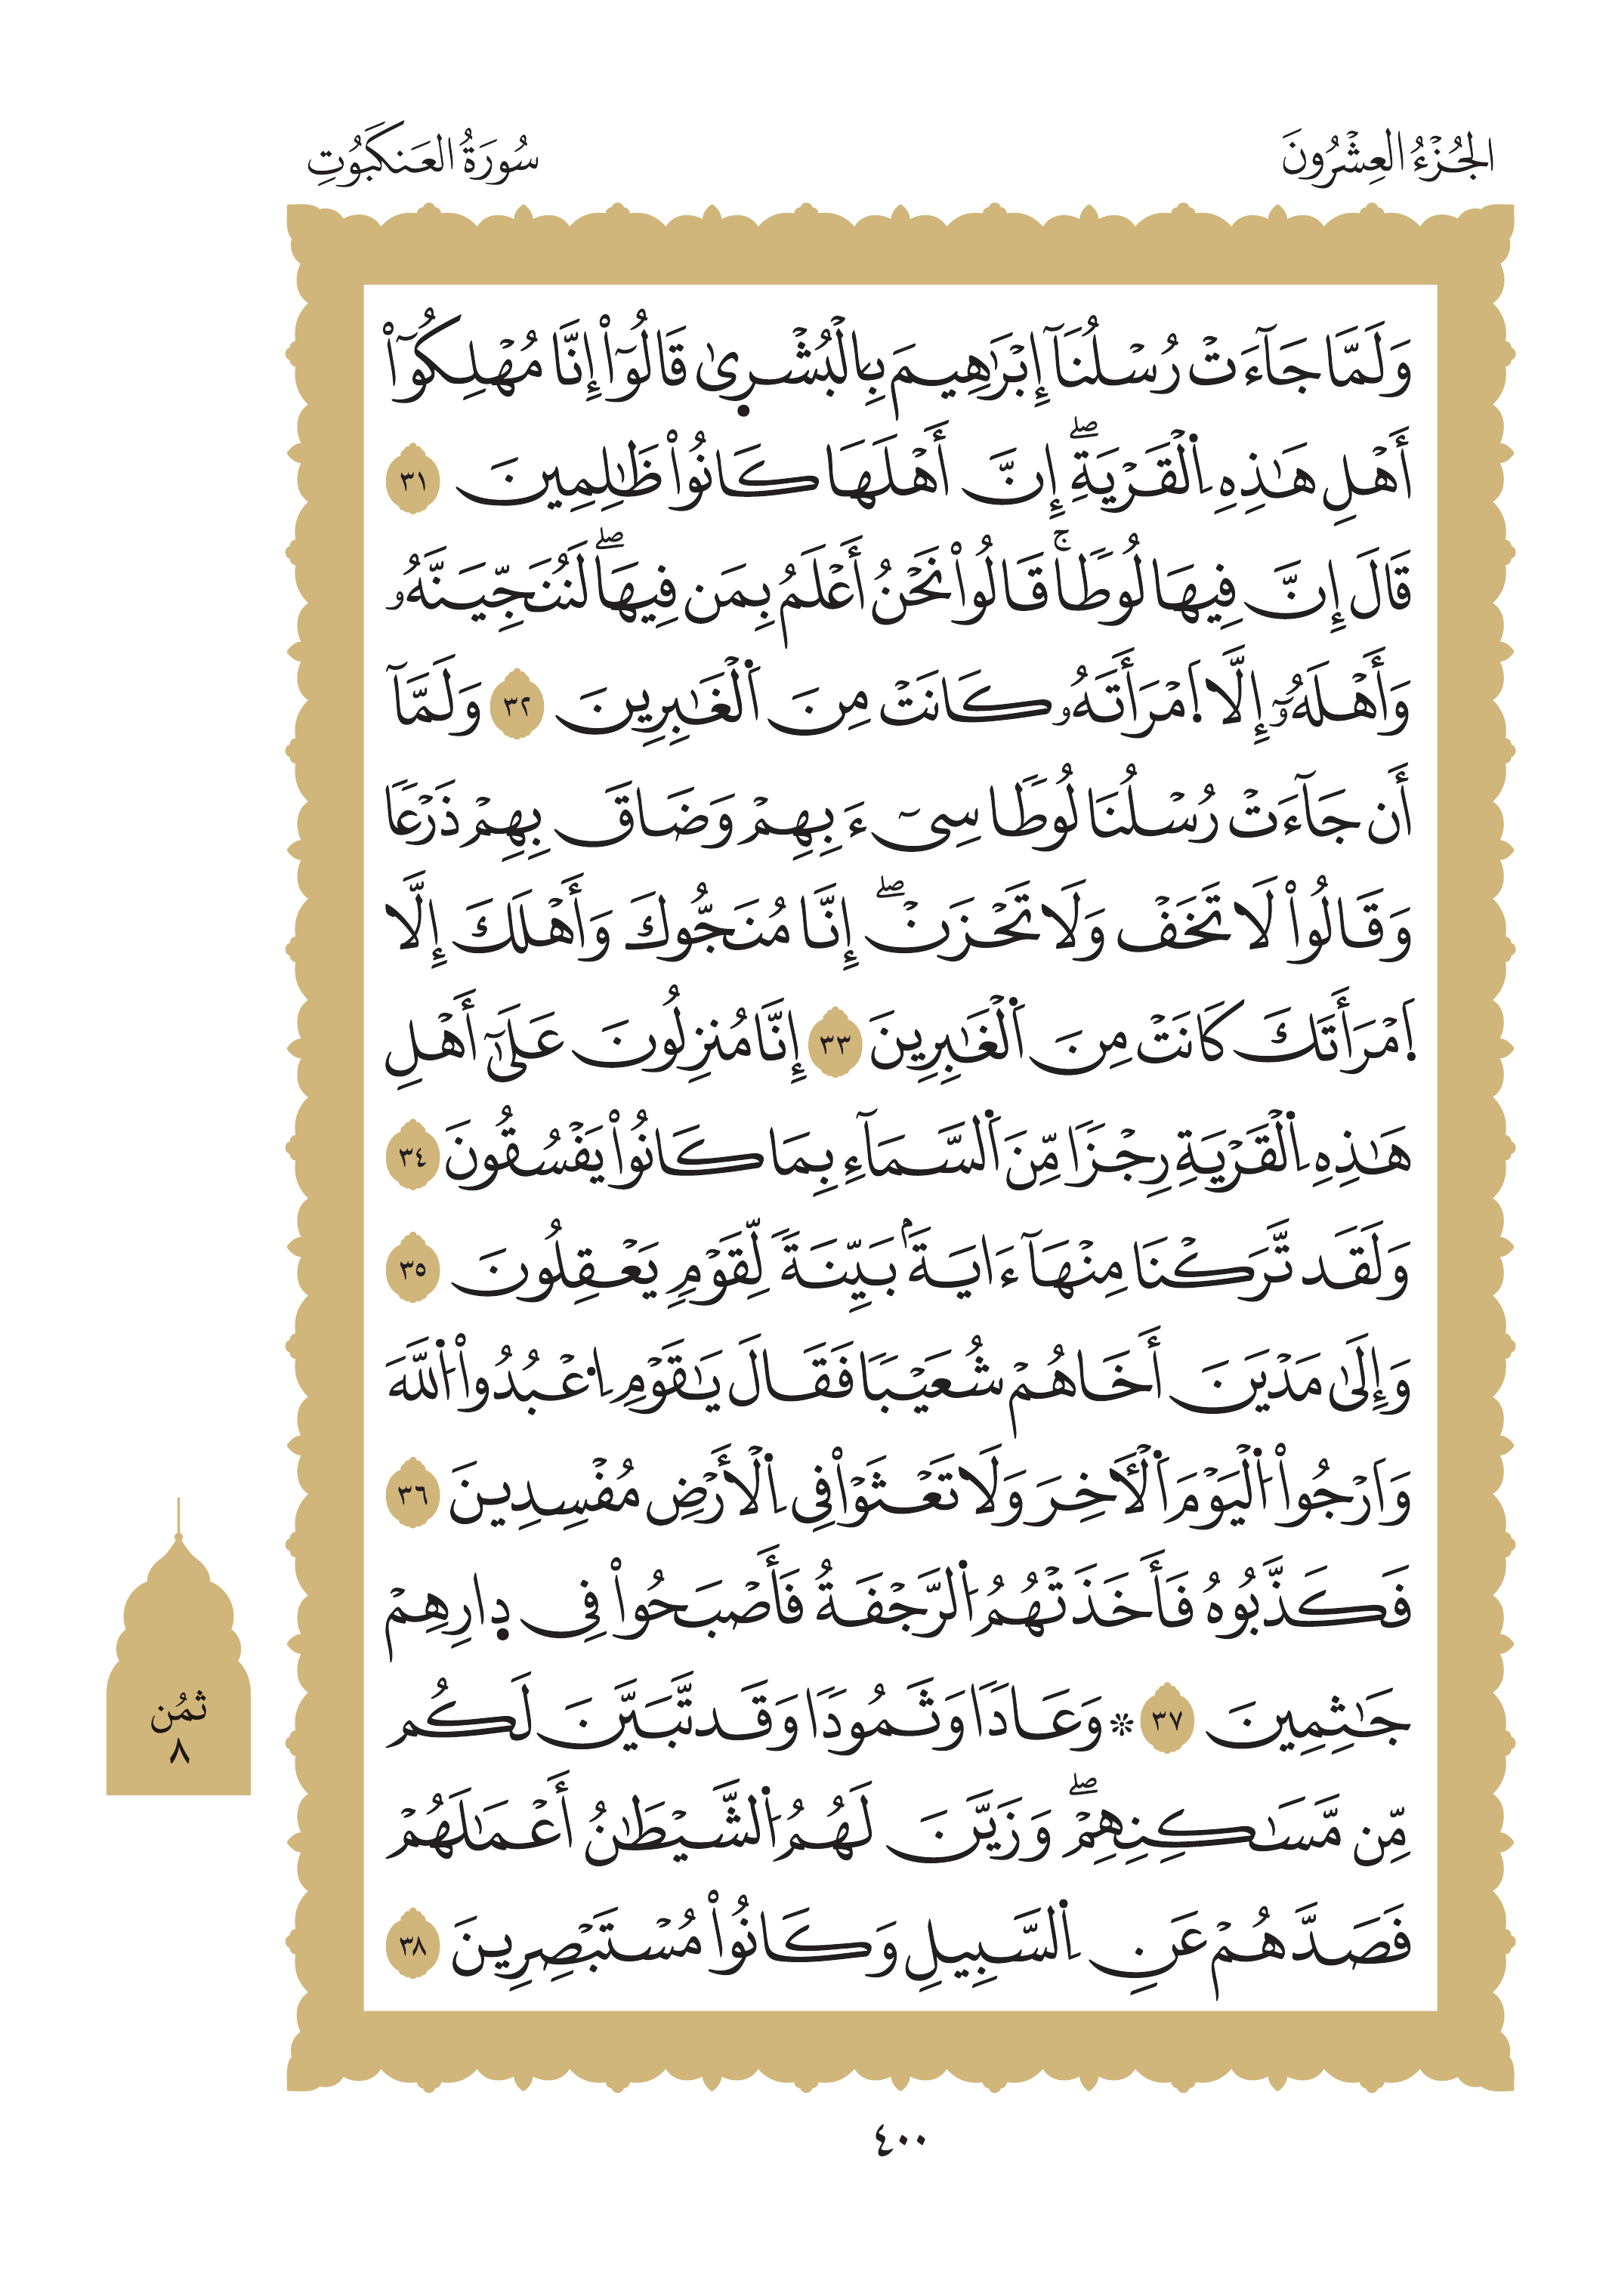 الجُزْءُ العِشْرُونَ
سُورَةُ العَنكَبُوتِ
وَلَمَّا جَآءَتْ رُسْلُنَآ إِبْرَٰهِيمَ بِالْبُشْرِىٰ قَالُوٓاْ إِنَّا مُهْلِكُوٓاْ
أَهْلِ هَٰذِهِ اِ۬لْقَرْيَةِۖ إِنَّ أَهْلَهَا كَانُواْ ظَٰلِمِينَ ٣١
قَالَ إِنَّ فِيهَا لُوطًاۚ قَالُواْ نَحْنُ أَعْلَمُ بِمَن فِيهَاۖ لَنُنَجِّيَنَّهُۥ
وَأَهْلَهُۥٓ إِلَّا اَ۪مْرَأَتَهُۥ كَانَتْ مِنَ اَ۬لْغَٰبِرِينَ ٣٢ وَلَمَّآ
أَن جَآءَتْ رُسْلُنَا لُوطًا سِيٓءَ بِهِمْ وَضَاقَ بِهِمْ ذَرْعًا
وَقَالُواْ لَا تَخَفْ وَلَا تَحْزَنْۖ إِنَّا مُنَجُّوكَ وَأَهْلَكَ إِلَّا
اَ۪مْرَأَتَكَ كَانَتْ مِنَ اَ۬لْغَٰبِرِينَ ٣٣ إِنَّا مُنزِلُونَ عَلَىٰٓ أَهْلِ
هَٰذِهِ اِ۬لْقَرْيَةِ رِجْزًا مِّنَ اَ۬لسَّمَآءِ بِمَا كَانُواْ يَفْسُقُونَ ٣٤
وَلَقَد تَّرَكْنَا مِنْهَآ ءَايَةَۢ بَيِّنَةً لِّقَوْمٍ يَعْقِلُونَ ٣٥
وَإِلَىٰ مَدْيَنَ أَخَاهُمْ شُعَيْبًا فَقَالَ يَٰقَوْمِ اِ۟عْبُدُواْ اُ۬للَّهَ
وَارْجُواْ اُ۬لْيَوْمَ اَ۬لْأٓخِرَ وَلَا تَعْثَوْاْ فِى اِ۬لْأَرْضِ مُفْسِدِينَ ٣٦
فَكَذَّبُوهُ فَأَخَذَتْهُمُ اُ۬لرَّجْفَةُ فَأَصْبَحُواْ فِى دِارِهِمْ
جَٰثِمِينَ ٣٧ ۞ وَعَادًا وَثَمُودًا وَقَد تَّبَيَّنَ لَكُم
مِّن مَّسَٰكِنِهِمْۖ وَزَيَّنَ لَهُمُ اُ۬لشَّيْطَٰنُ أَعْمَٰلَهُمْ
فَصَدَّهُمْ عَنِ اِ۬لسَّبِيلِ وَكَانُواْ مُسْتَبْصِرِينَ ٣٨
ثُمُن
٨
٤٠٠